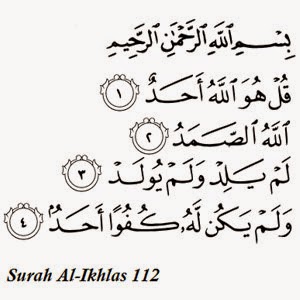 بِسْمِ اللَّهِ الرَّحْمَٰنِ الرَّحِيمِ
قُلْ هُوَ اللَّهُ أَحَدٌ ١
اللَّهُ الصَّمَدُ ٢
لَمْ يَلِدْ وَلَمْ يُولَدْ ٣
وَلَمْ يَكُن لَّهُ كُفُوًا أَحَدٌ ٤
Surah Al-Ikhlas 112